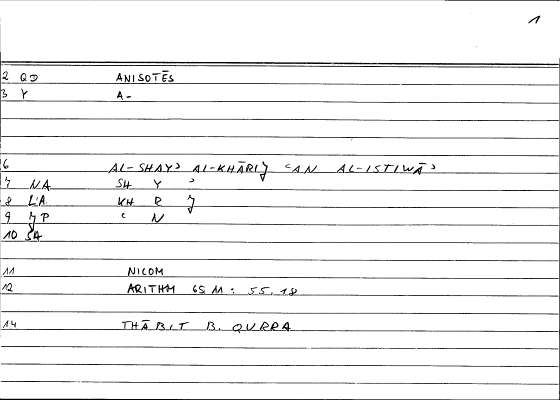 1
2 QD ANISOTĒS
3 Y A-
6 AL-SHAYʾ AL-KHĀRIJ ʿAN AL-ISTIWĀʾ
7 NA SH Y ʾ
8 LA KH R J
9 JP ʿ N
10 SA
11 NICOM
12 ARITHM GSM: 55,18
14 THĀBIT B. QURRA